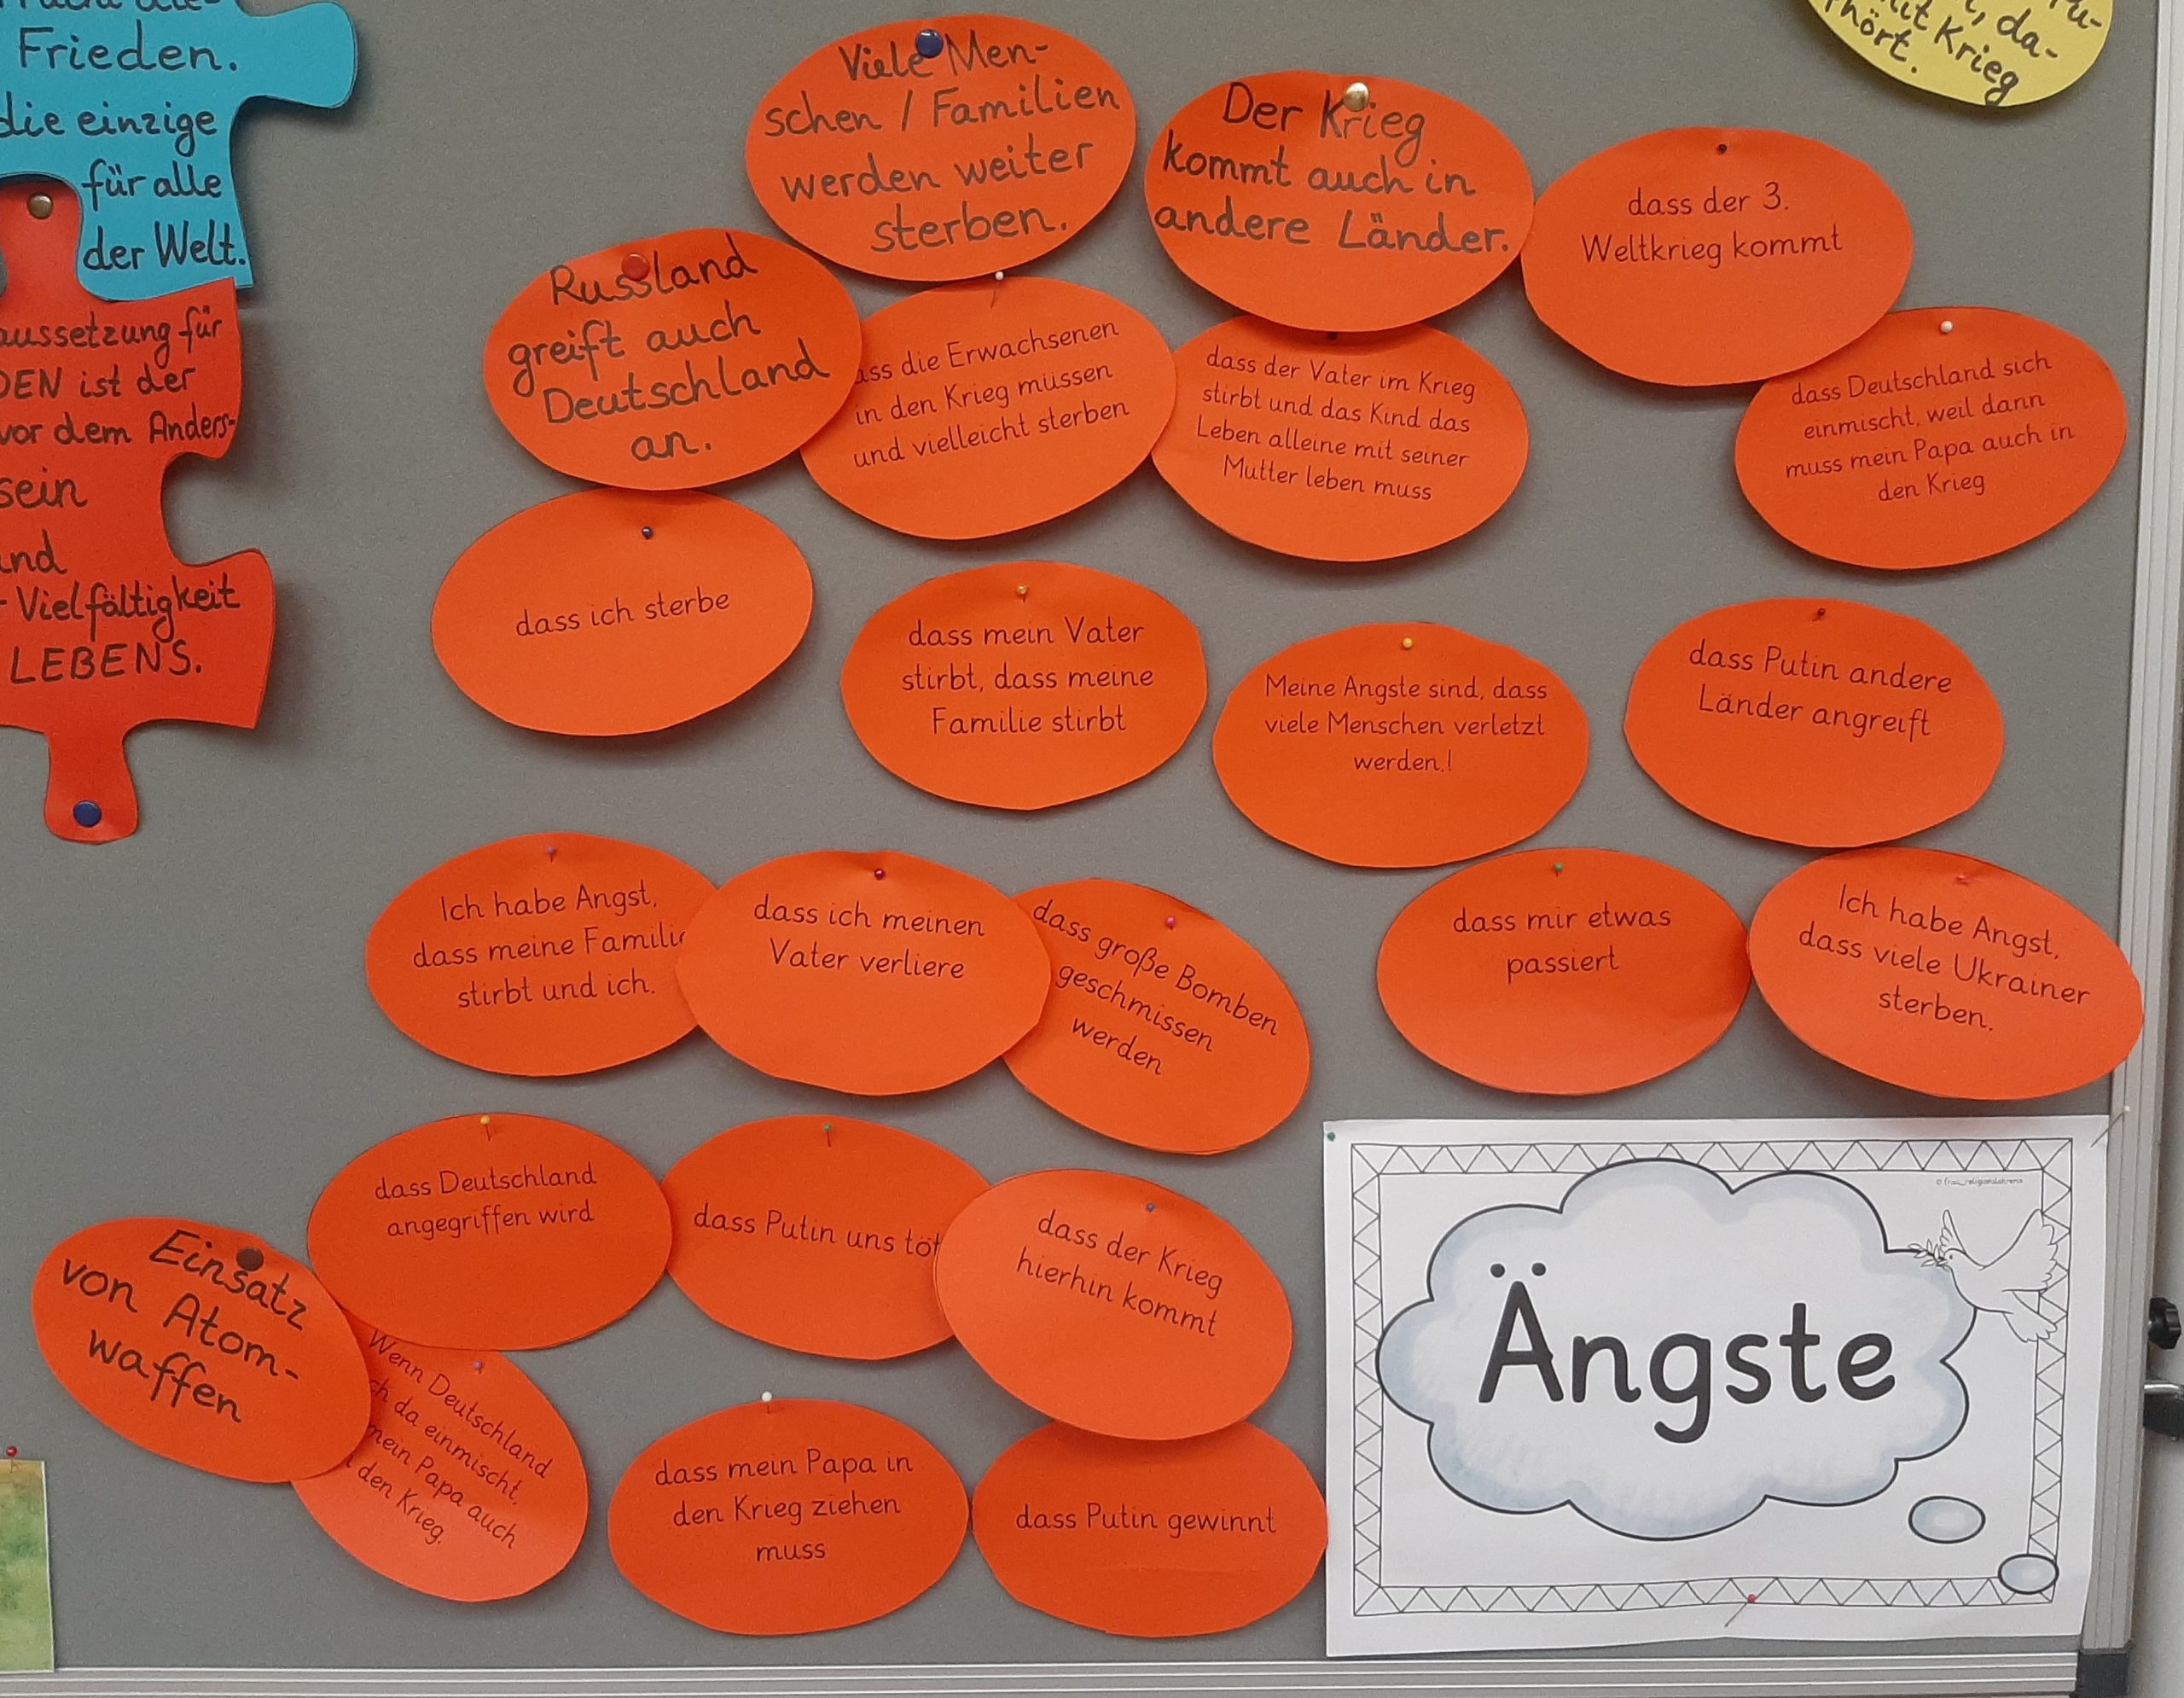 Frieden.
die einzige
für alle
der Welt.
aussetzung für
DEN ist der
vor dem Anders-
sein
und
- Vielfältigkeit
LEBENS.
mit Krieg
da-
hört.
Viele Men-
schen / Familien
werden weiter
sterben.
Der Krieg
kommt auch in
andere Länder.
dass der 3.
Weltkrieg kommt
Russland
greift auch
Deutschland
an.
ass die Erwachsenen
in den Krieg müssen
und vielleicht sterben
dass der Vater im Krieg
stirbt und das Kind das
Leben alleine mit seiner
Mutter leben muss
dass Deutschland sich
einmischt, weil dann
muss mein Papa auch in
den Krieg
dass ich sterbe
dass mein Vater
stirbt, dass meine
Familie stirbt
Meine Ängste sind, dass
viele Menschen verletzt
werden.!
dass Putin andere
Länder angreift
Ich habe Angst,
dass meine Familie
stirbt und ich.
dass ich meinen
Vater verliere
dass große Bomben
geschmissen
werden
dass mir etwas
passiert
Ich habe Angst,
dass viele Ukrainer
sterben.
dass Deutschland
angegriffen wird
dass Putin uns töt
dass der Krieg
hierhin kommt
Einsatz
von Atom-
waffen
Wenn Deutschland
ch da einmischt,
mein Papa auch
den Krieg.
dass mein Papa in
den Krieg ziehen
muss
dass Putin gewinnt
Ängste